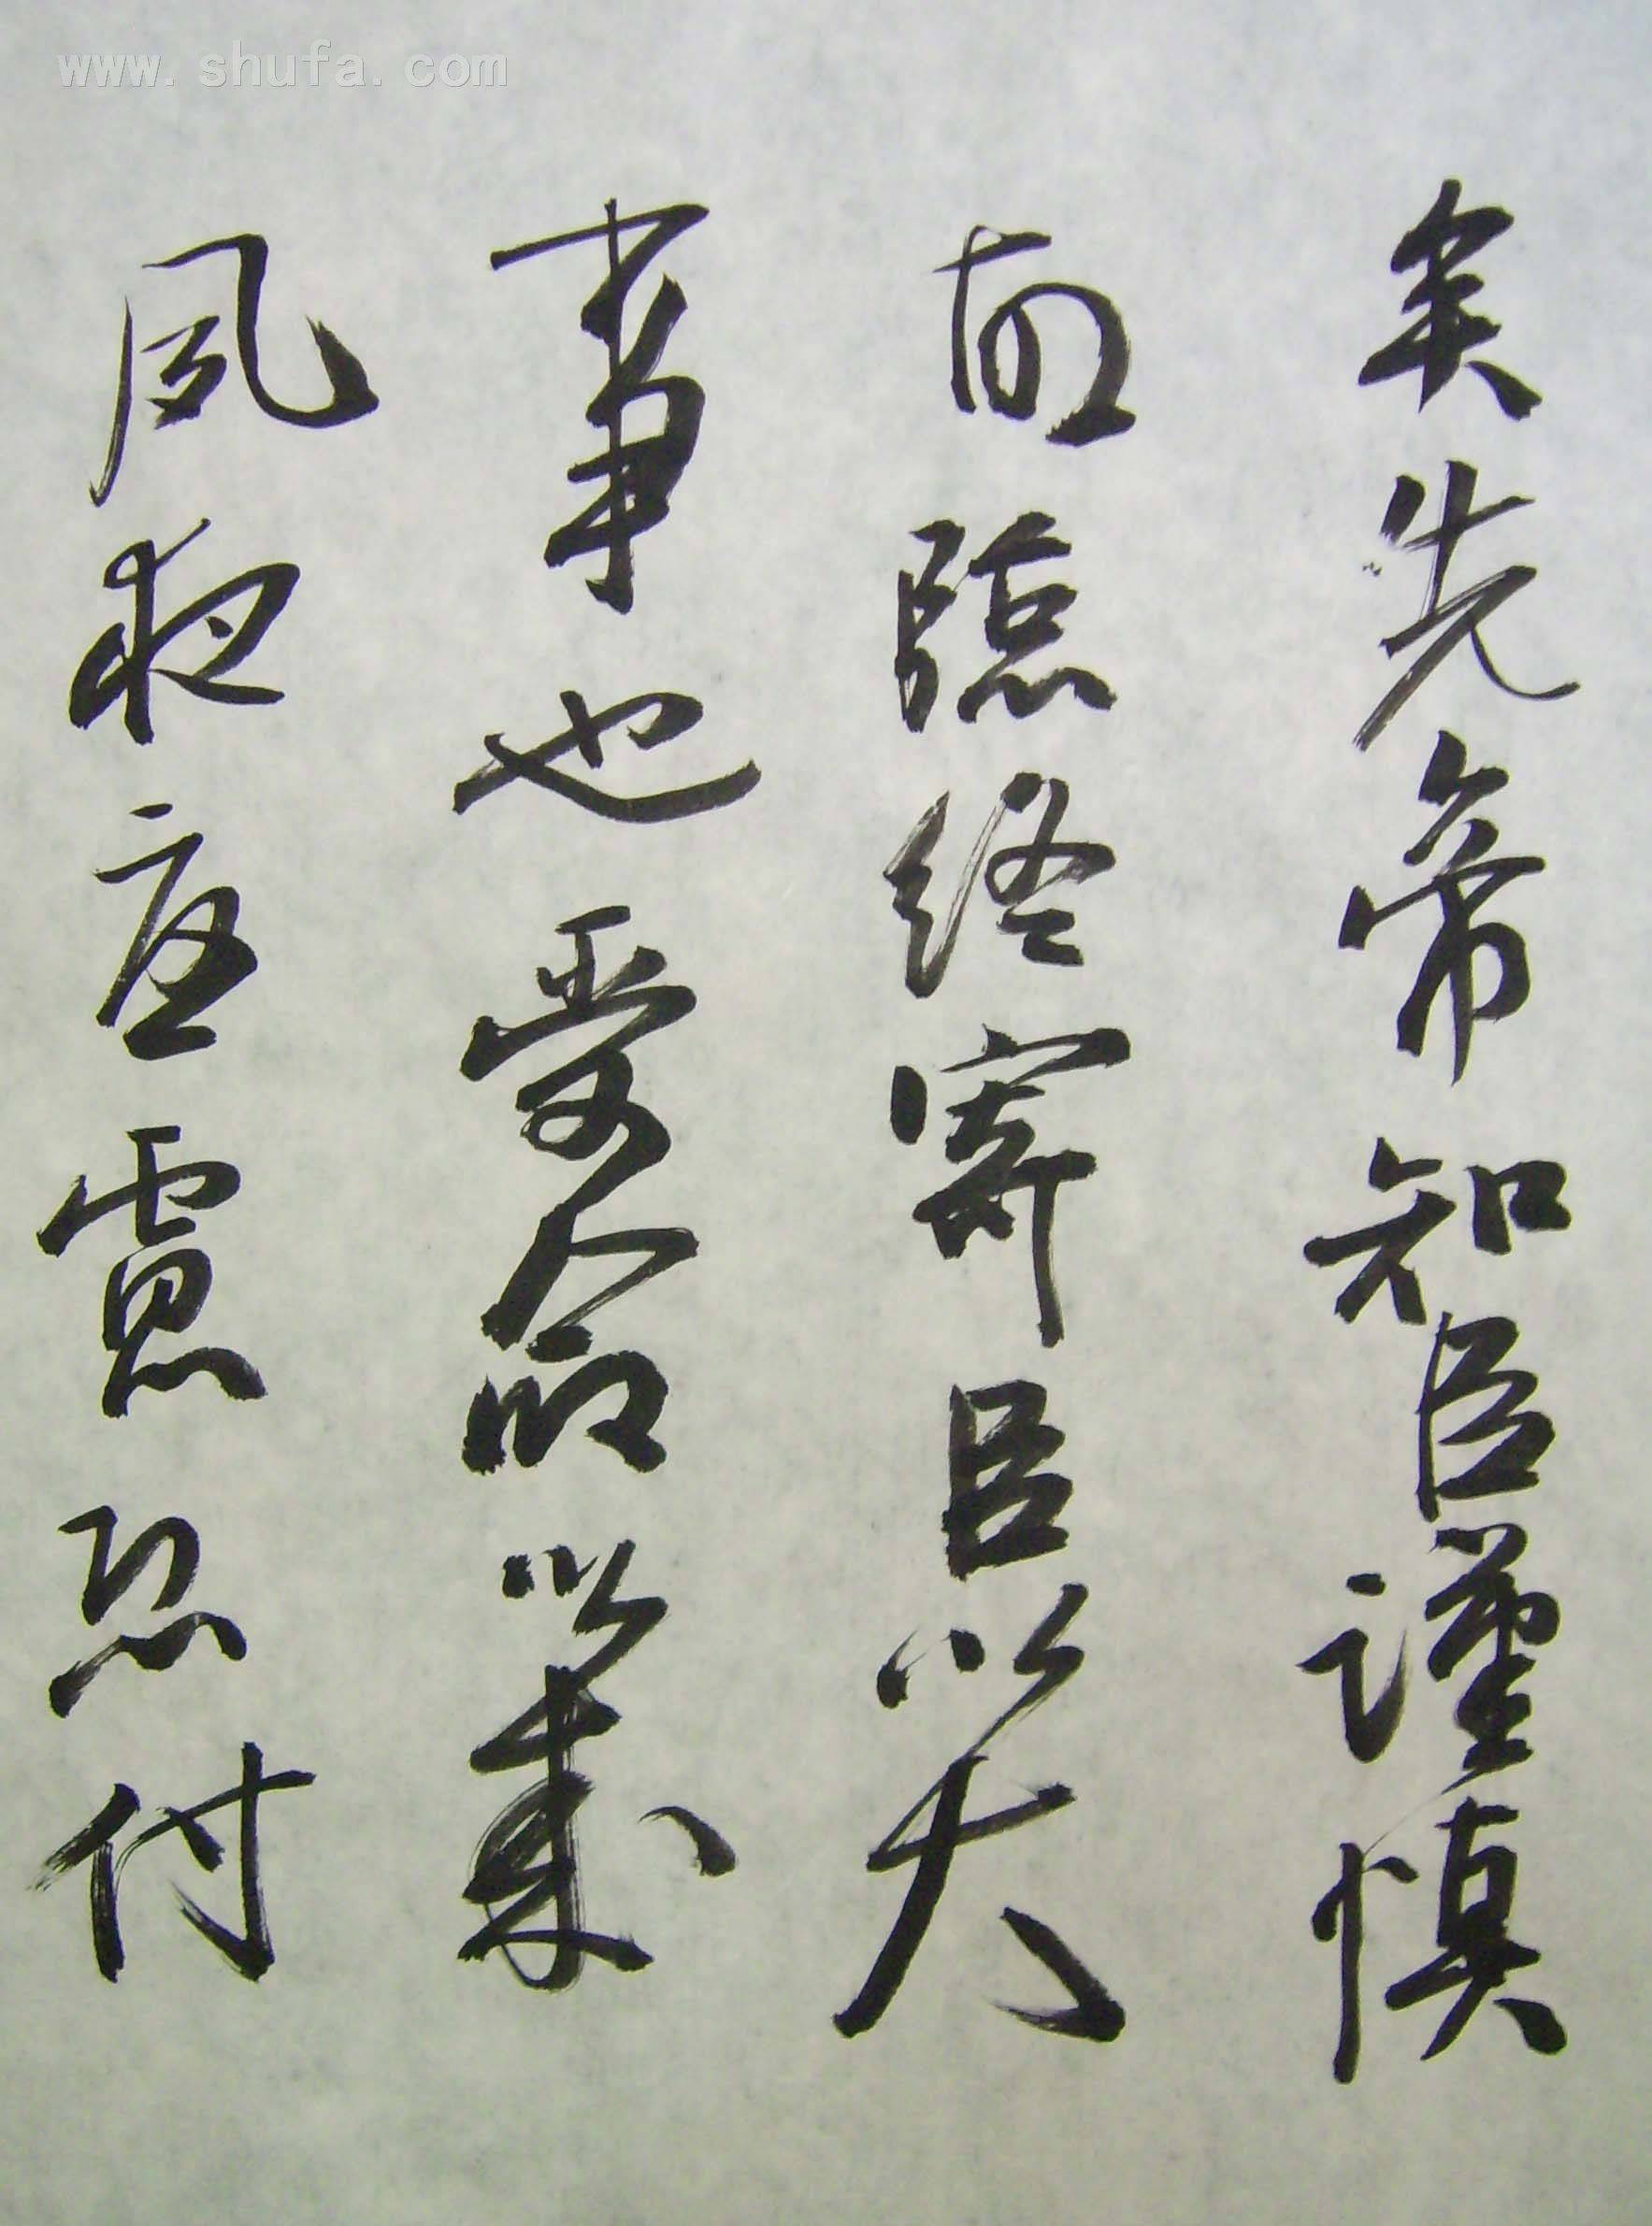 www.shufa.com
矣先帝知臣謹慎
故臨終寄臣以大
事也受命以來
夙夜憂慮恐付